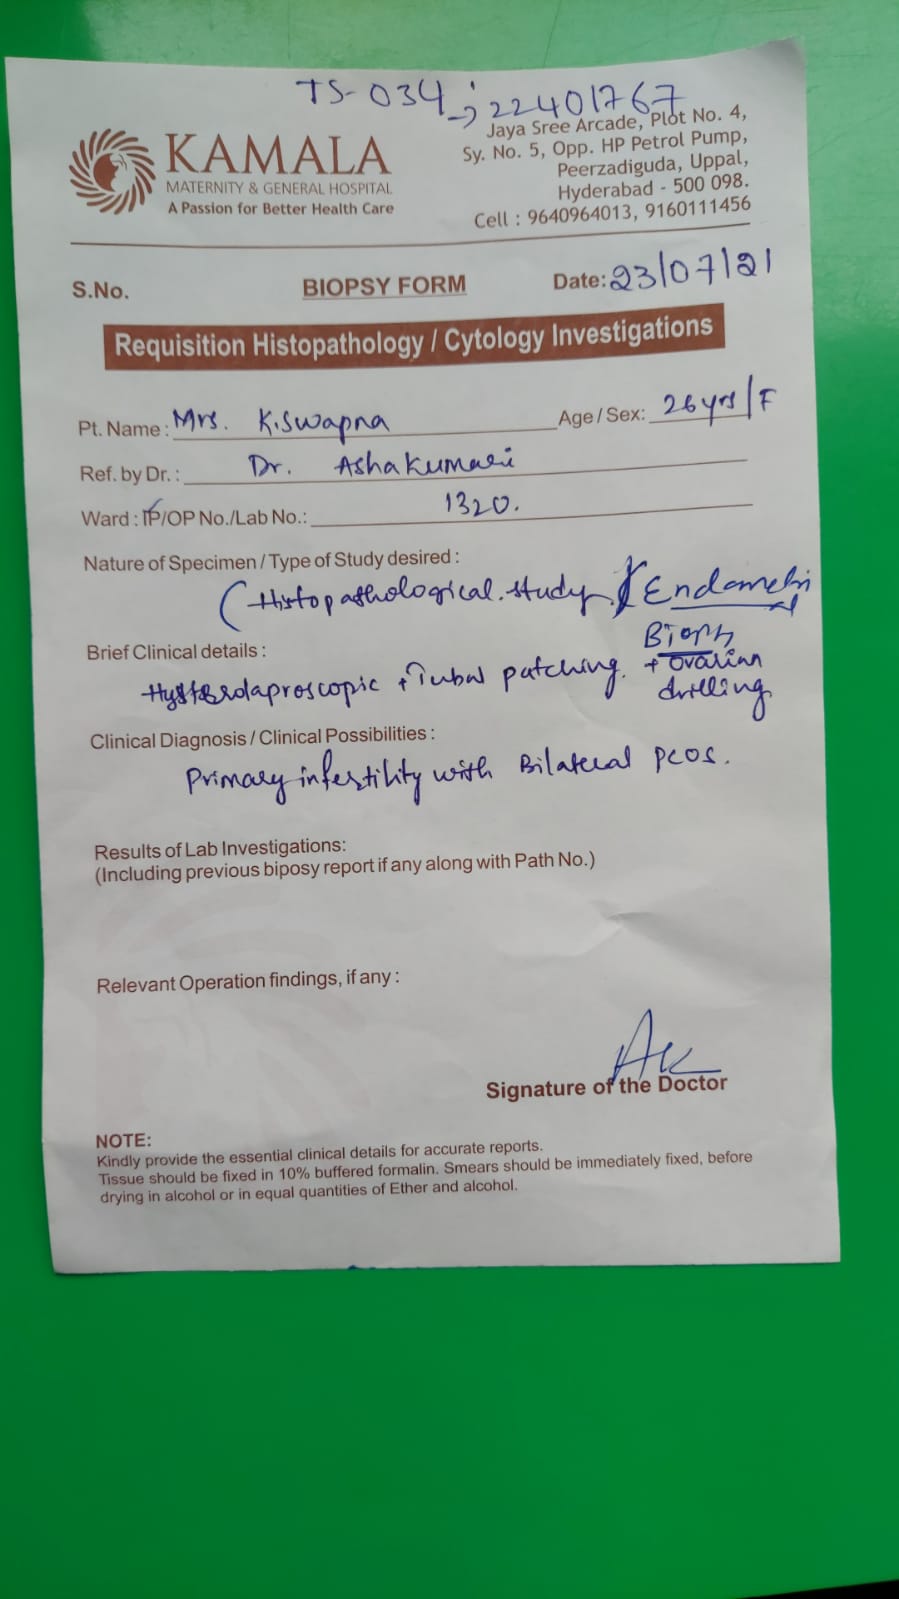 TS-034 → 22401767
KAMALA
MATERNITY & GENERAL HOSPITAL
A Passion for Better Health Care
Jaya Sree Arcade, Plot No. 4,
Sy. No. 5, Opp. HP Petrol Pump,
Peerzadiguda, Uppal,
Hyderabad - 500 098.
Cell : 9640964013, 9160111456
S.No. BIOPSY FORM Date: 23/07/21
Requisition Histopathology / Cytology Investigations
Pt. Name : Mrs. K.Swapna Age / Sex: 26 yrs / F
Ref. by Dr. : Dr. Asha Kumari
Ward : IP/OP No./Lab No.: 1320.
Nature of Specimen / Type of Study desired :
(Histopathological study) Endometrial
Biopsy
Brief Clinical details :
Hysterolaproscopic + Tubal patching. + ovarian
drilling
Clinical Diagnosis / Clinical Possibilities :
Primary infertility with Bilateral PCOS.
Results of Lab Investigations:
(Including previous biposy report if any along with Path No.)
Relevant Operation findings, if any :
Signature of the Doctor
NOTE:
Kindly provide the essential clinical details for accurate reports.
Tissue should be fixed in 10% buffered formalin. Smears should be immediately fixed, before
drying in alcohol or in equal quantities of Ether and alcohol.